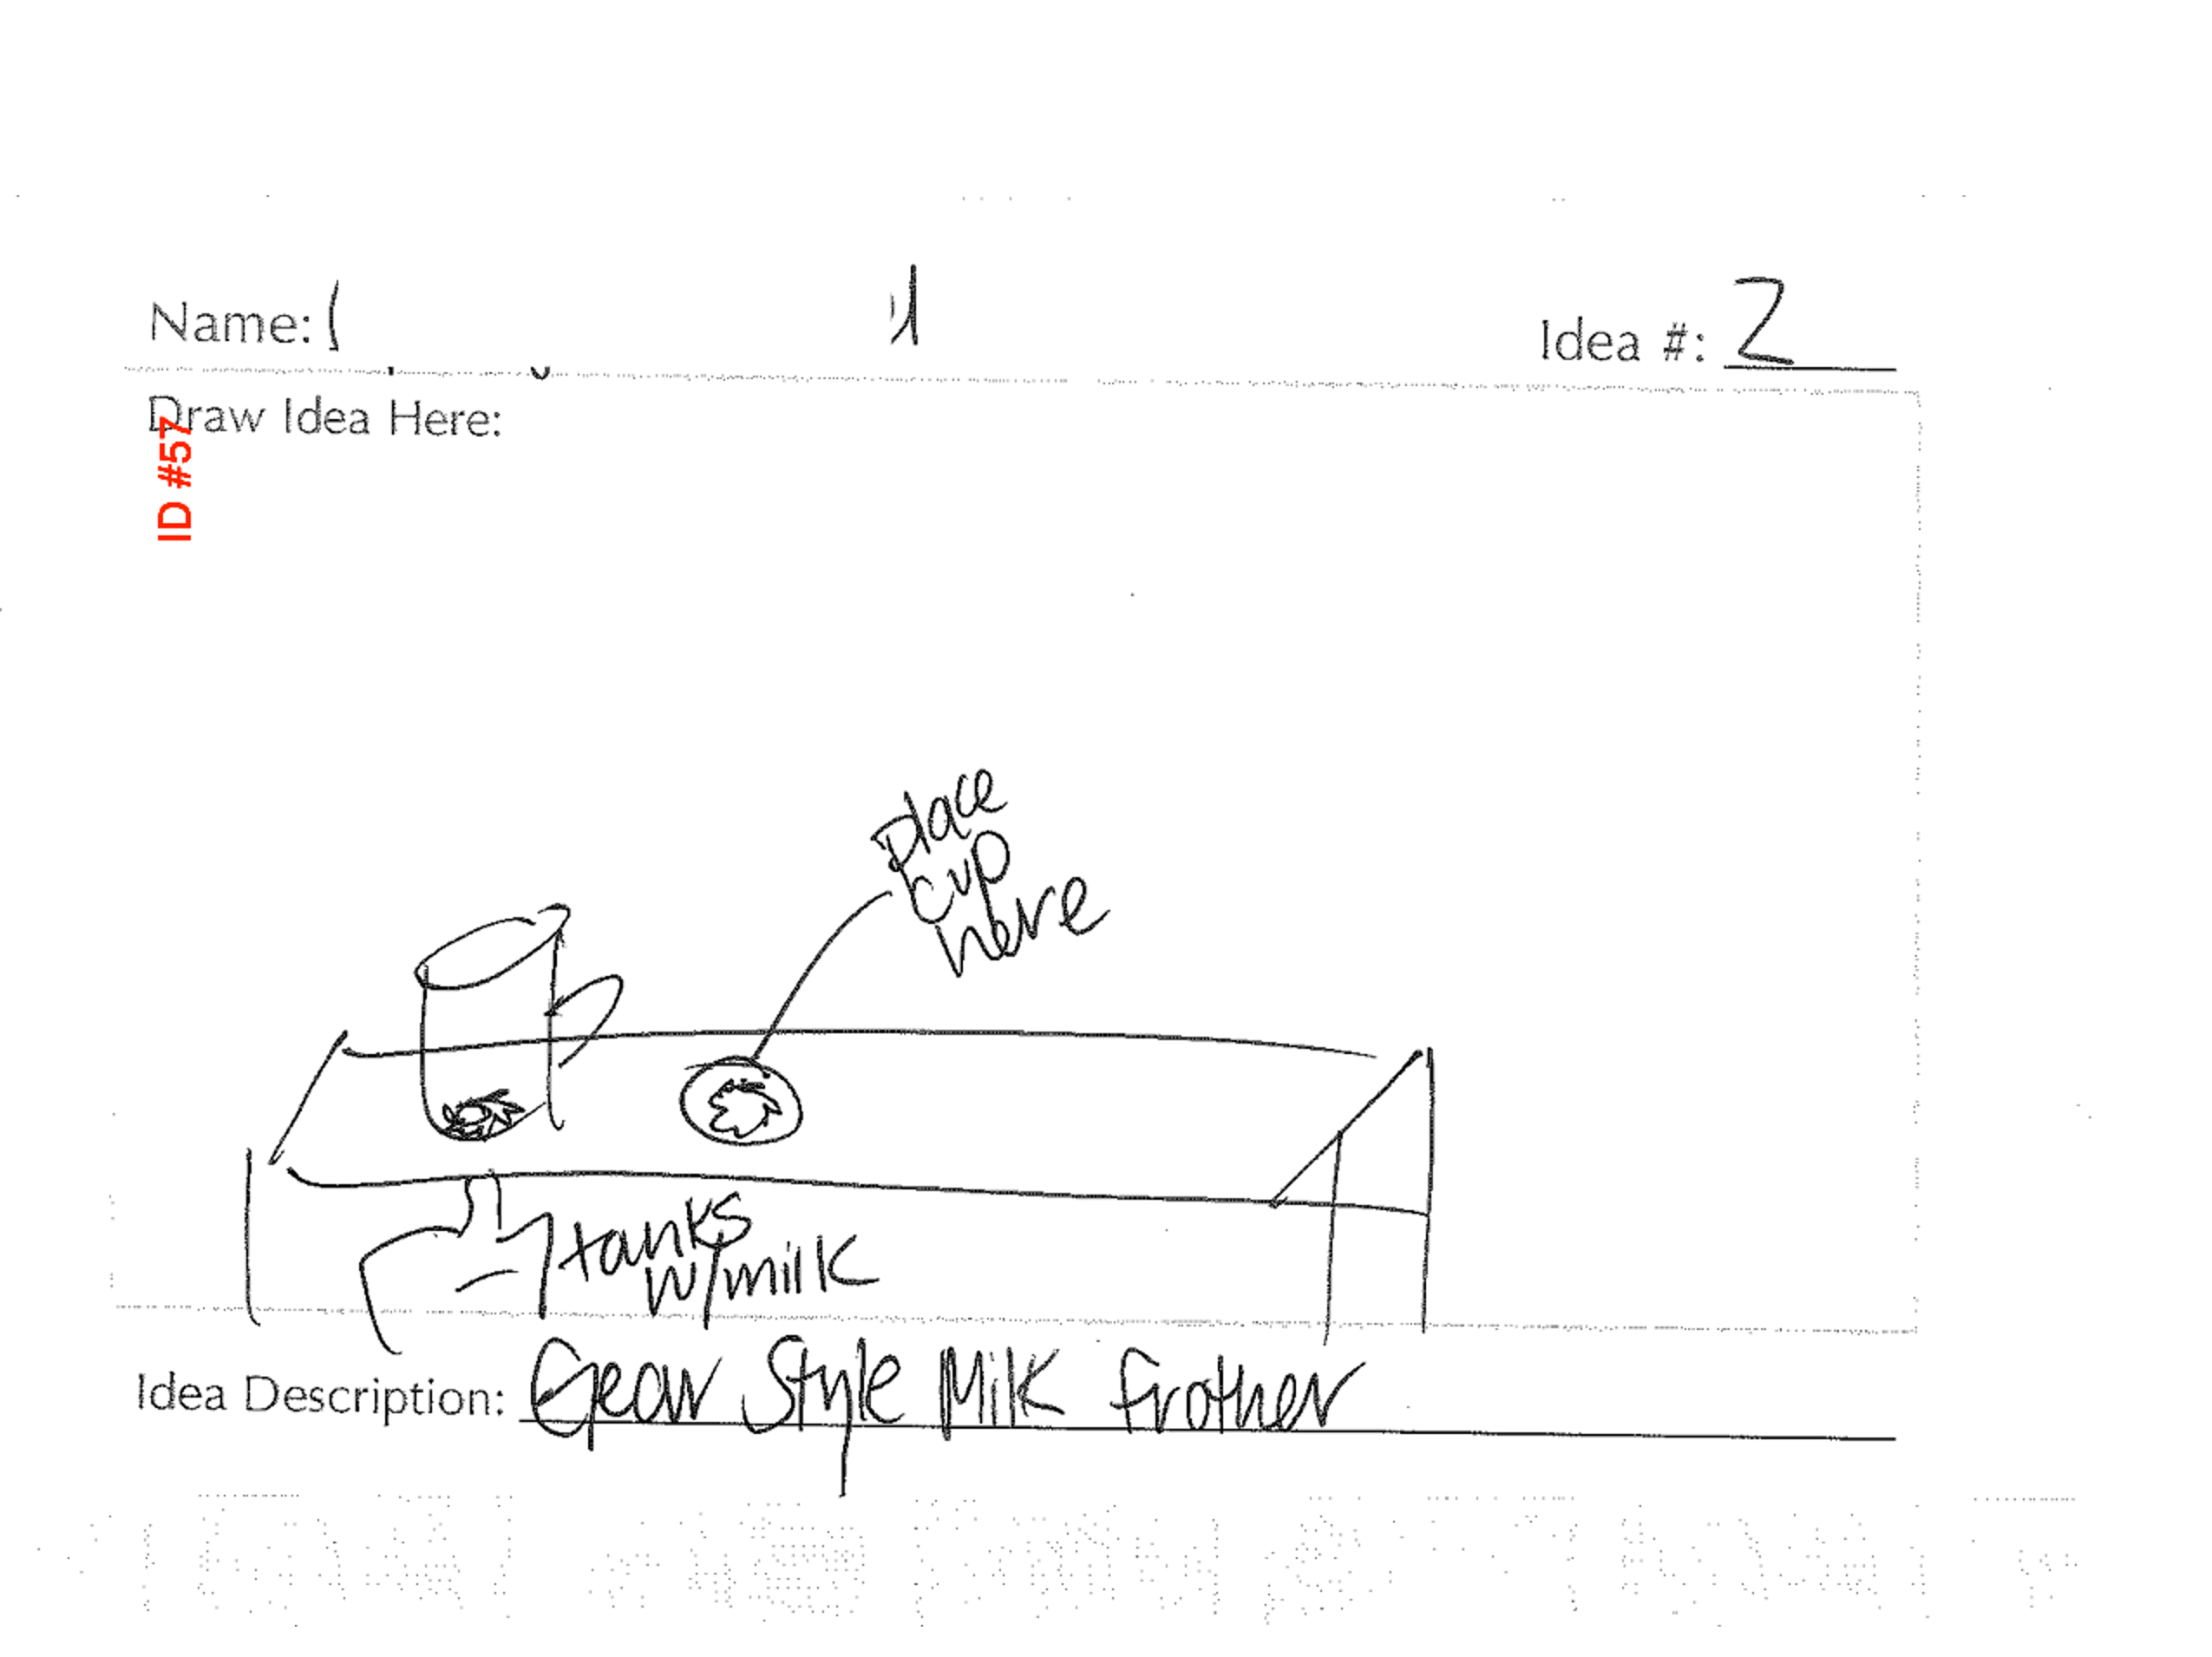 Name:
Idea #: 2
Draw Idea Here:
ID #57
place
cup
here
tanks
w/milk
Idea Description: Gear Style Milk frother